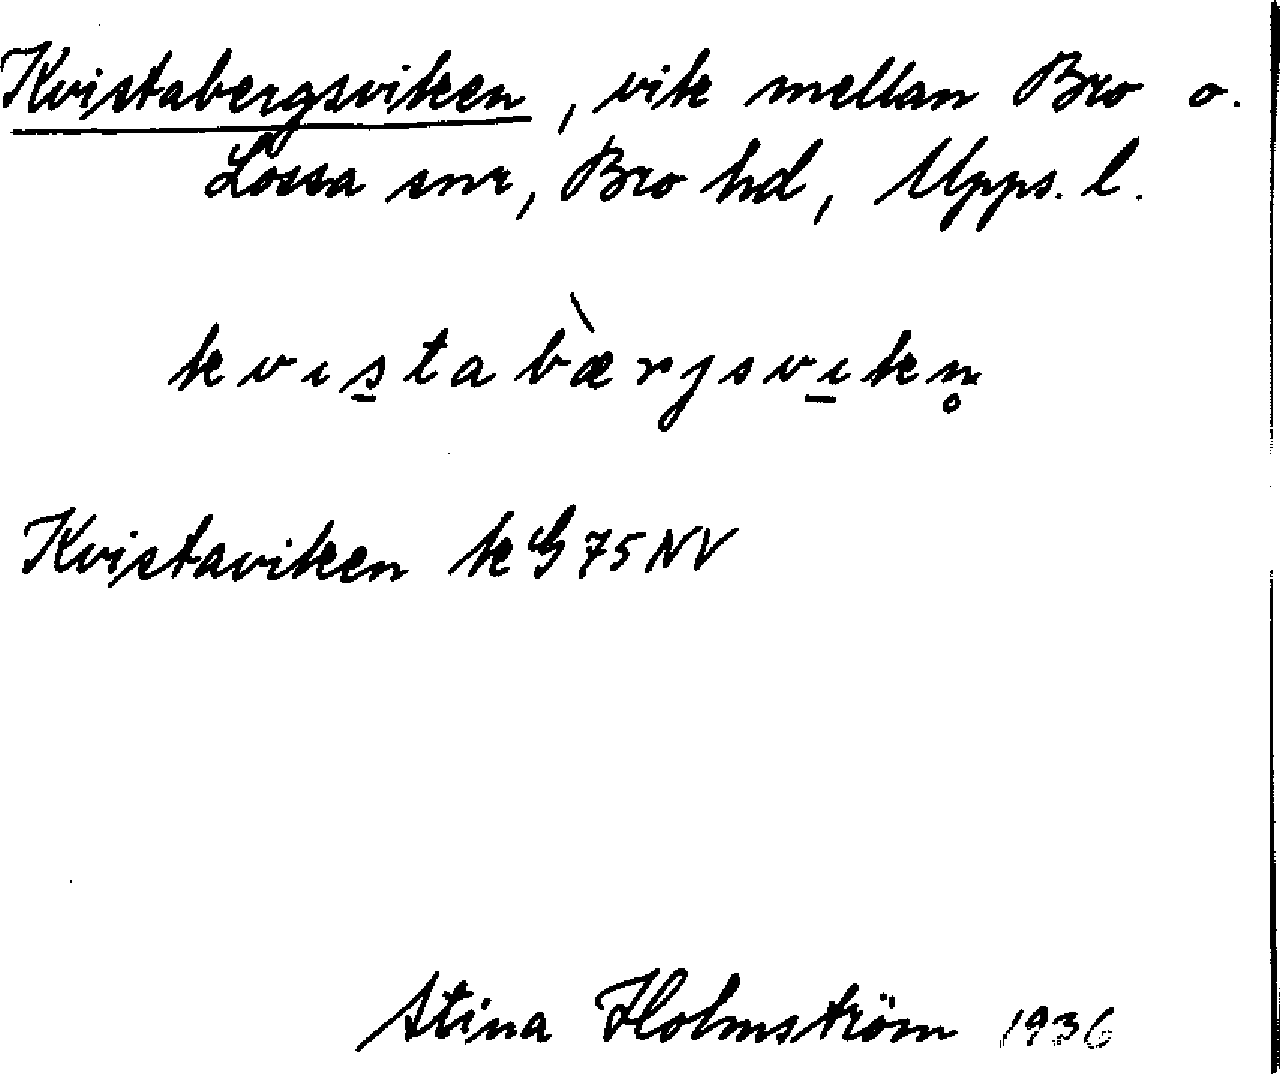 Kvistabergsviken, vik mellan Bro o.
Lossa snr, Bro hd, Upps. l.
kvıs̱tabæ̀rjsvı̱kn̥
Kvistaviken k G 75 NV
Stina Holmström 1936